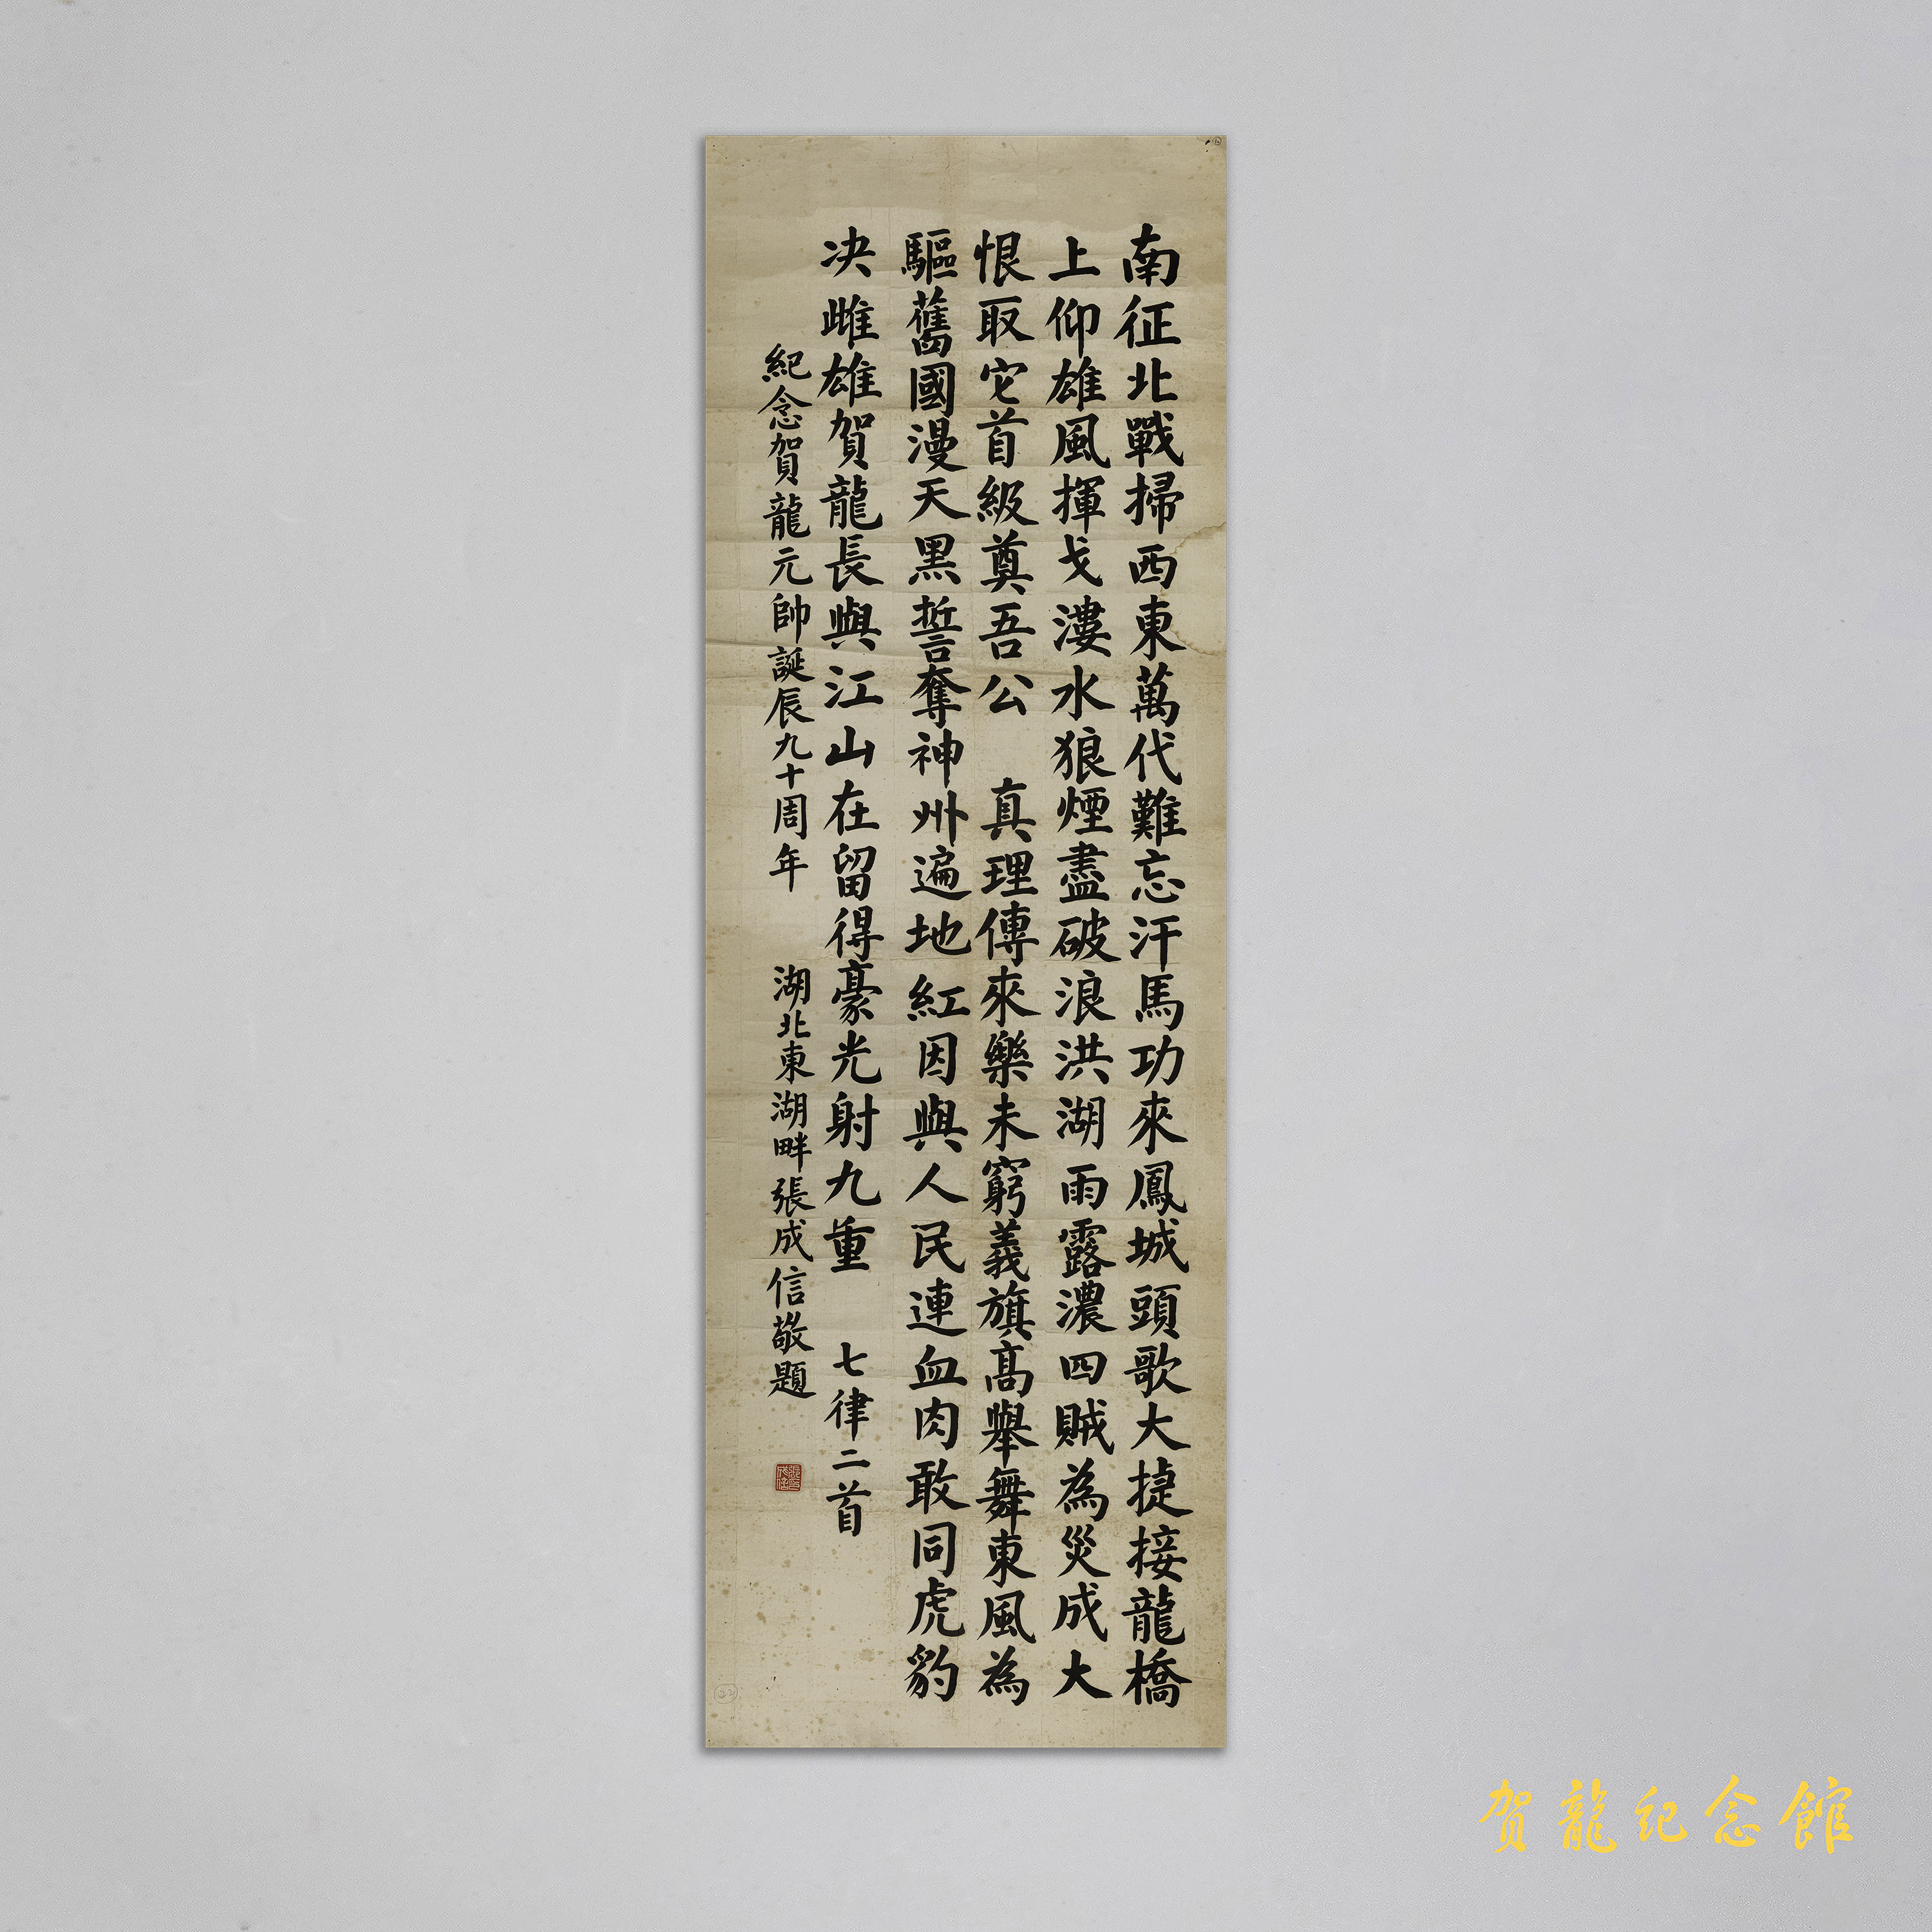 南征北戰掃西東萬代難忘汗馬功來鳳城頭歌大捷接龍橋
上仰雄風揮戈漊水狼煙盡破浪洪湖雨露濃四賊為災成大
恨取它首級奠吾公 真理傳來樂未窮義旗高舉舞東風為
驅舊國漫天黑誓奪神州遍地紅因與人民連血肉敢同虎豹
决雌雄賀龍長與江山在留得豪光射九重 七律二首
紀念賀龍元帥誕辰九十周年 湖北東湖畔張成信敬題
賀龍纪念館